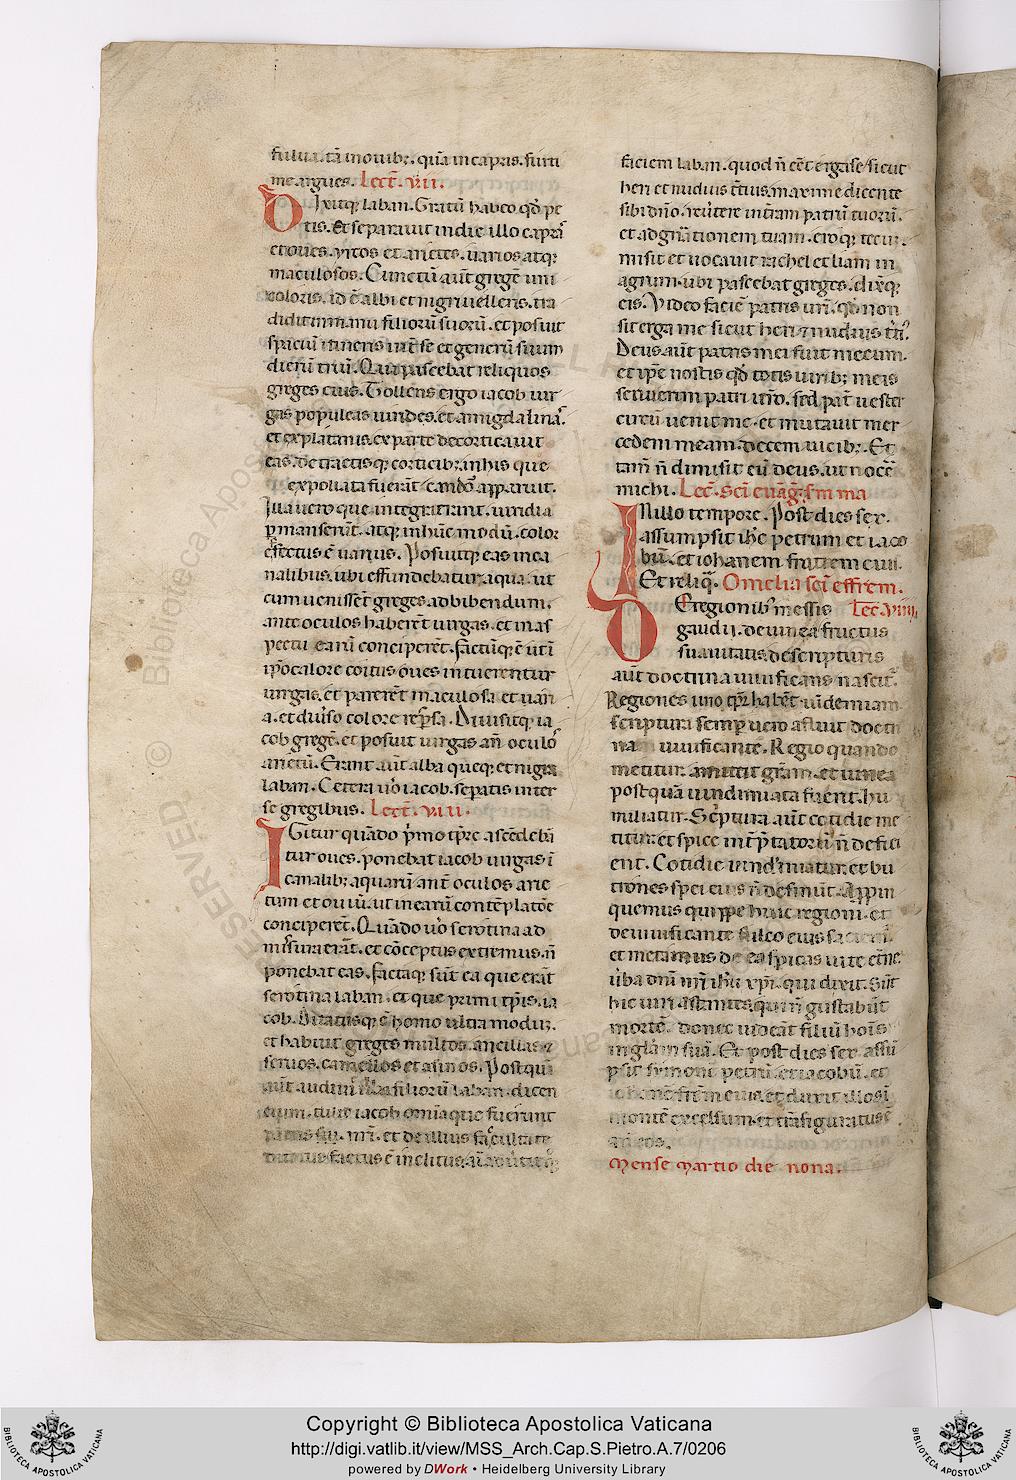 fulua. tā inouibꝫ. quā in capris. furti
me argues. Lect̄. vii.
Dixitqꝫ laban. Gratū habeo qđ pe
tis. Et separauit in die illo caprā
et oues. yrcos et arietes. uarios atqꝫ
maculosos. Cunctū aūt gregē uni
coloris. id ē albi et nigri uelleris. tra
didit in manu filiorū suorū. et posuit
spaciū itineris int̄ se et generū suum
dierū triū. Qui pascebat reliquos
greges eius. Tollens ergo iacob uir
gas populeas uirides. et amigdalinā.
et ex platanis. ex parte decorticauit
eas. detractisqꝫ corticibꝫ. in his que
expoliata fuerāt candōr apparuit.
Illa uero que integra erant. uiridia
ꝑmanserūt. atqꝫ in hūc modū. color
effectus ē uarius. Posuitqꝫ eas in ca
nalibus. ubi effundebatur aqua. ut
cum uenissēt greges ad bibendum.
ante oculos haberēt uirgas. et in as
pectu earū conciperēt. factūqꝫ ē ut ī
ipo calore coitus oues intuerentur
uirgas. et parerēt maculosa. et uari
a. et diuerso colore resp̄sa. Diuisitqꝫ ia
cob gregē. et posuit uirgas añ oculos
arietū. Erant aūt alba queqꝫ et nigra
laban. Cetera uo iacob. seꝑatis inter
se gregibus. Lect̄. viii.
Igitur quādo pimo tp̄re ascēdebāt
tur oues. ponebat iacob uirgas ī
canalibꝫ aquarū ant̄ oculos arie
tum et ouiū. ut in earū contēplatōe
conciperēt. Quādo uo serotina ad
missura erāt. et cōceptus extremus. ñ
ponebat eas. factaqꝫ sūt ea que erāt
serotina laban. et que primi tp̄is. ia
cob. Ditatusqꝫ ē homo ultra modū.
et habuit greges multos. ancillas ⁊
seruos. camelos et asinos. Postquā
aūt audiuit uba filiorū laban. dicen
cium. tulit iacob omnia que fuerunt
patris nri. et de illius facultate
ditatus factus ē inclitus. aīaduertit qꝫ
faciem laban. quod ñ eēt erga se sicut
heri et nudius t̄tius. maxime dicente
sibi dño. reūtere in t̄ram patrū tuorū.
et ad gnātionem tuam. eroqꝫ tecū.
misit et uocauit rachel et liam in
agrum. ubi pascebat greges. dixitqꝫ
eis. Video faciē patris uri. qđ non
sit erga me sicut heri ⁊ nudius t̄ti9.
Deus aūt patris mei fuit mecum.
et ipe nostis qđ totis uiribꝫ meis
seruierim patri uro. sed pat̄ uester
circūuenit me. et mutauit mer
cedem meam. decem uicibꝫ. Et
tam̄ ñ dimisit eū deus. ut nocēt
michi. Lec̄. sci euāḡ. sm ma
In illo tempore. Post dies sex.
assumpsit ihc petrum et iaco
bū. et iohanem fratrem eius.
Et reliq̄. Omelia sci effrem.
Eregionibus messis Lec̄. viiii.
gaudij. de uinea fructus
suauitatis. de scripturis
aūt doctrina uiuificans nascit̄.
Regiones uno tp̄r habēt uīdemiam
scriptura semꝑ uero afluit doctri
nam uiuificante. Regio quando
metitur. amittit grām. et uinea
postquā uindimiata fuerit. hu
miliatur. Scriptura aūt cotidie me
titur. et spice int̄p̄tatorū ñ defici
ent. Cotidie uindimiatur. et bu
tiones spei eius ñ desinūt. Appin
quemus quippe huic regioni. et
de uiuificante sulco eius
et metamus de ea spicas uite et̄ne
uba dnī nri ihu xp̄i. qui dixit. Sūt
hic uiri astantes. qui ñ gustabūt
mortē. donec uideāt filiū hoīs
in glām suā. Et post dies sex assū
psit symonē petrū. et iacobū. et
iohānē frēm eius. et duxit illos ī
montē excelsum. et trāsfiguratus ē
an̄ eos.
Mense Martio die nona.
Copyright © Biblioteca Apostolica Vaticana
http://digi.vatlib.it/view/MSS_Arch.Cap.S.Pietro.A.7/0206
powered by DWork • Heidelberg University Library
BIBLIOTECA APOSTOLICA VATICANA
BIBLIOTECA APOSTOLICA VATICANA